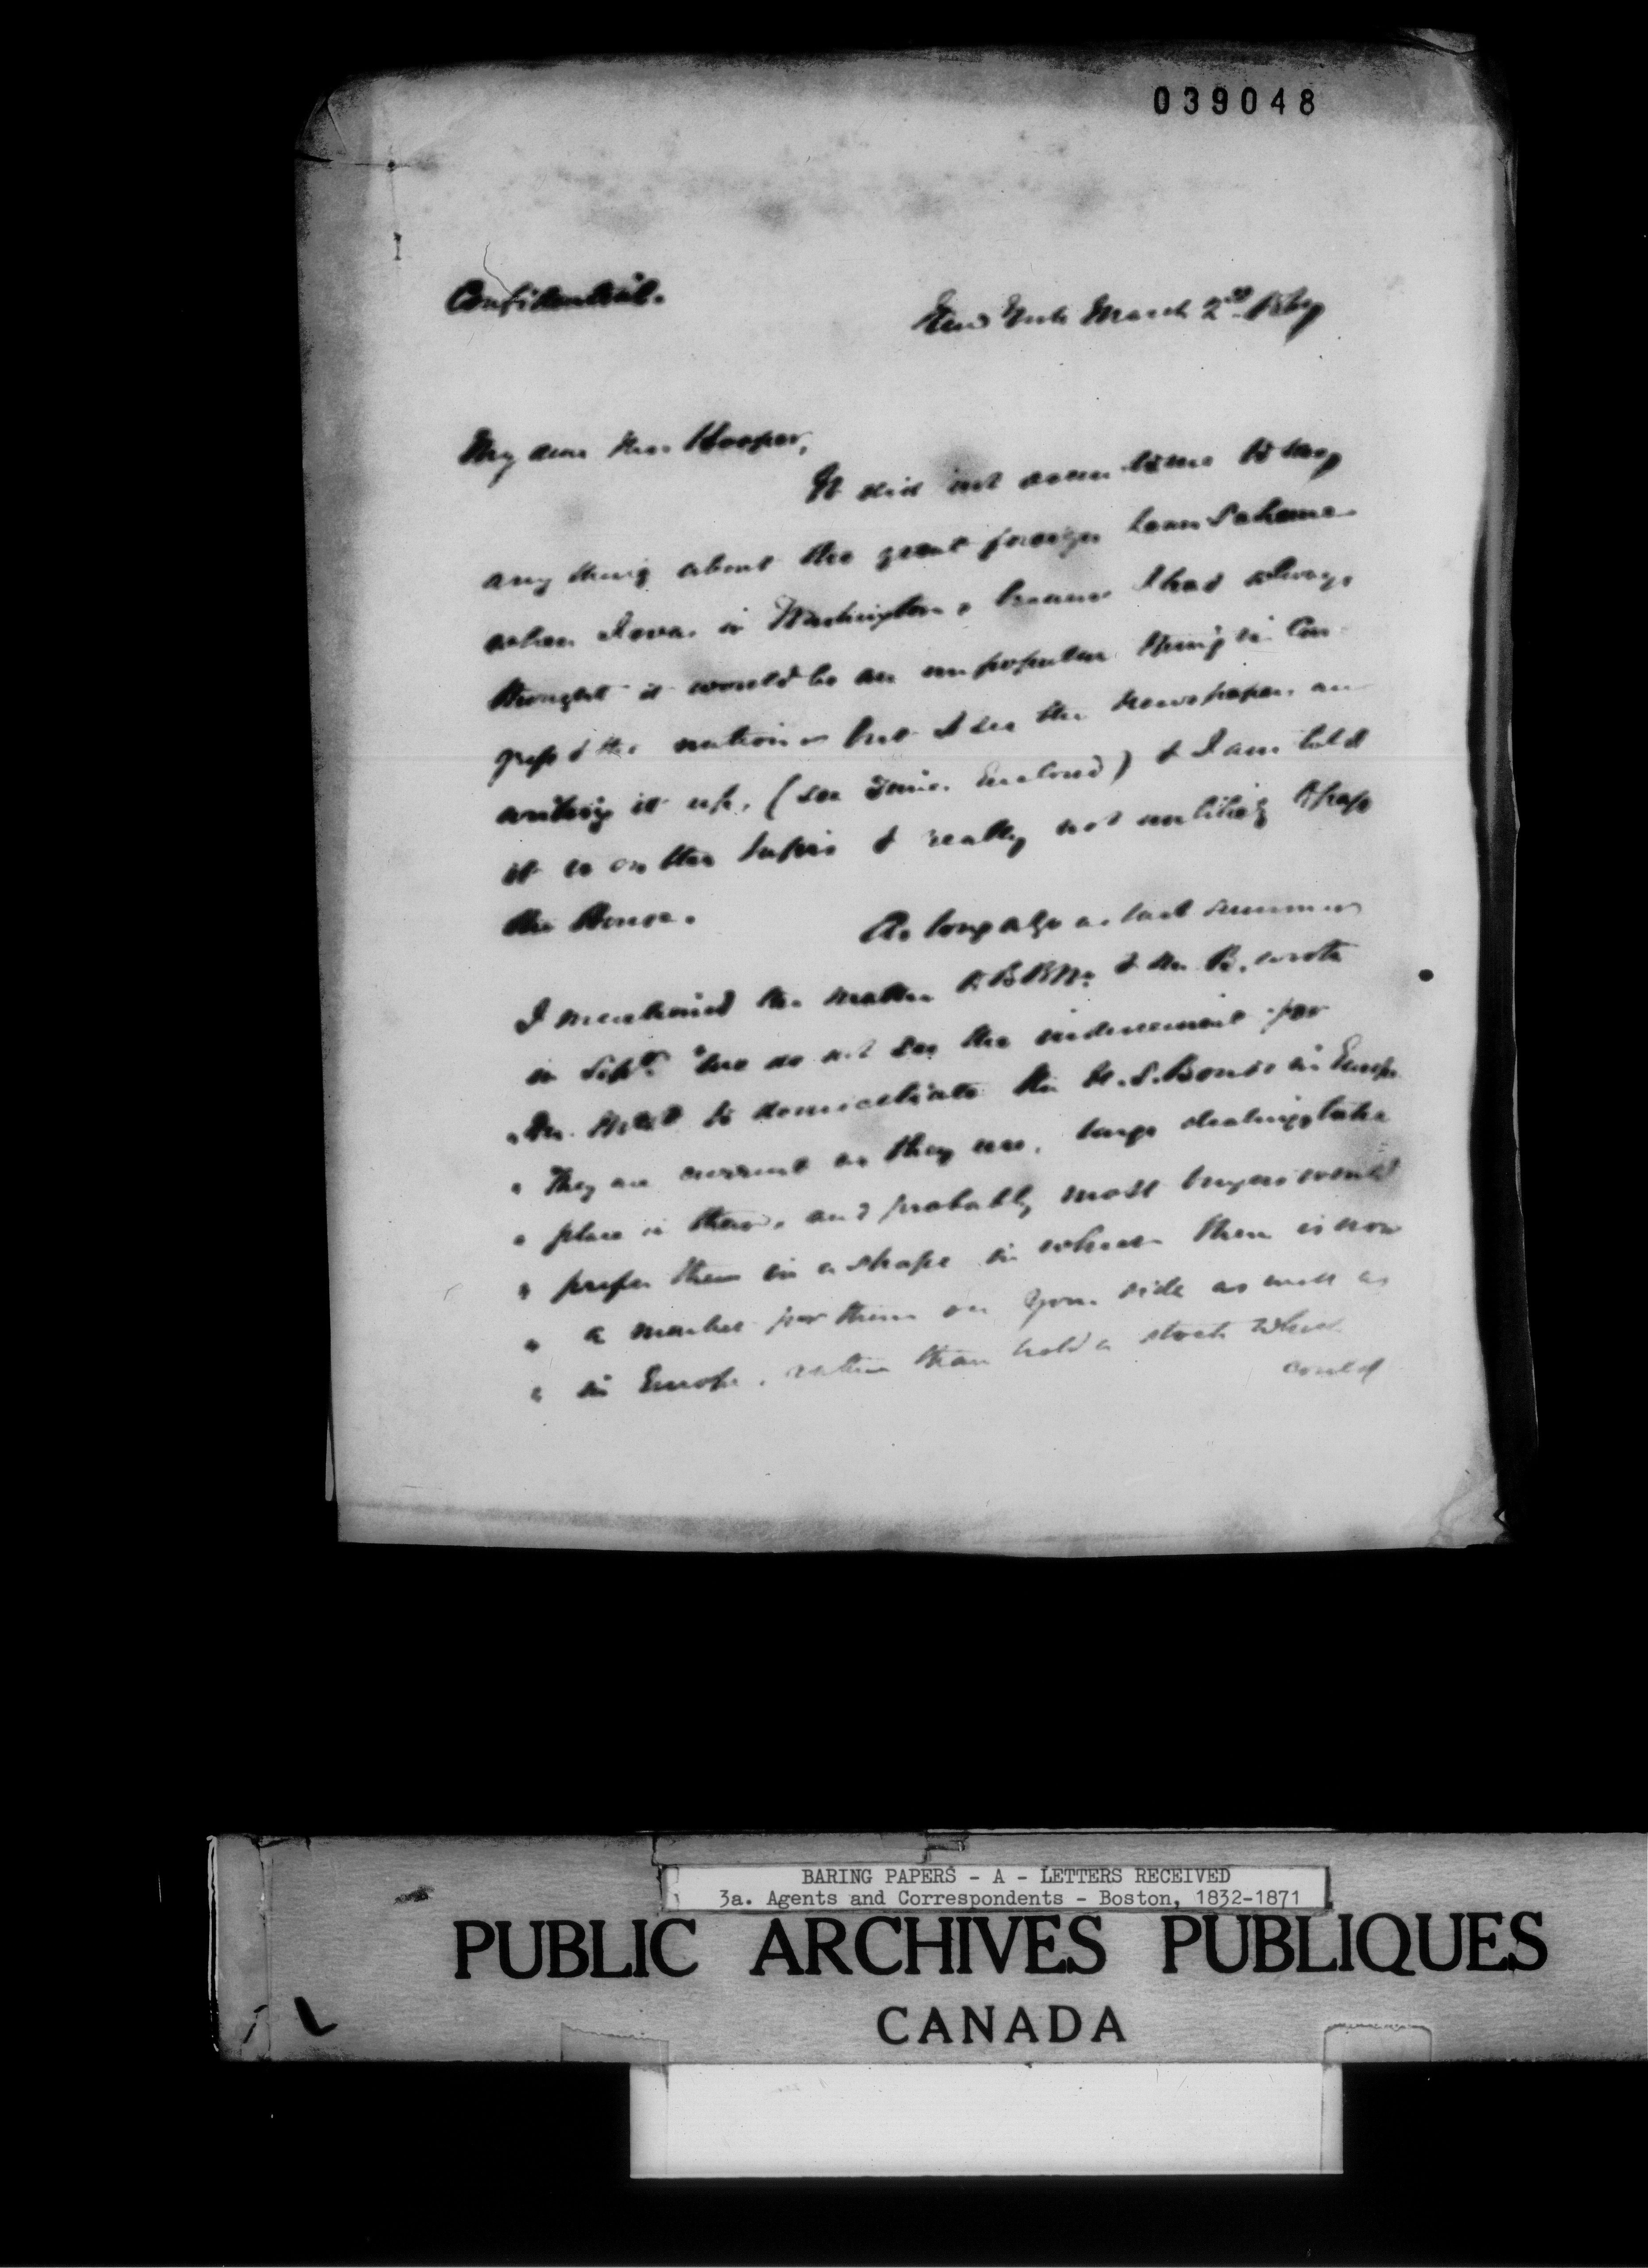 039048
Confidential.
New York March 2nd
My dear Mr. Hooper,
It did not occur to me to say
any thing about the great foreign loan Scheme
when I was in Washington, because I had always
thought it would be an unpopular thing in Con-
gress & the nation - but I see the newspapers are
writing it up, (see Times Enclosed) & I am told
it is on the tapis & really not unlikely to pass
the House. As long ago as last summer
I mentioned the matter to BB & Co & Mr B. wrote
in Sept. "we do not see the inducement for
" to domiciliate the U.S. Bonds in Europe
" They are current as they are, large dealings take
" place in them, and probably most buyers would
" prefer them in a shape in which there is now
" a market for them on your side as well as
" in Europe, rather than hold a stock which
could
BARING PAPERS - A - LETTERS RECEIVED
3a. Agents and Correspondents - Boston, 1832-1871
PUBLIC ARCHIVES PUBLIQUES
CANADA